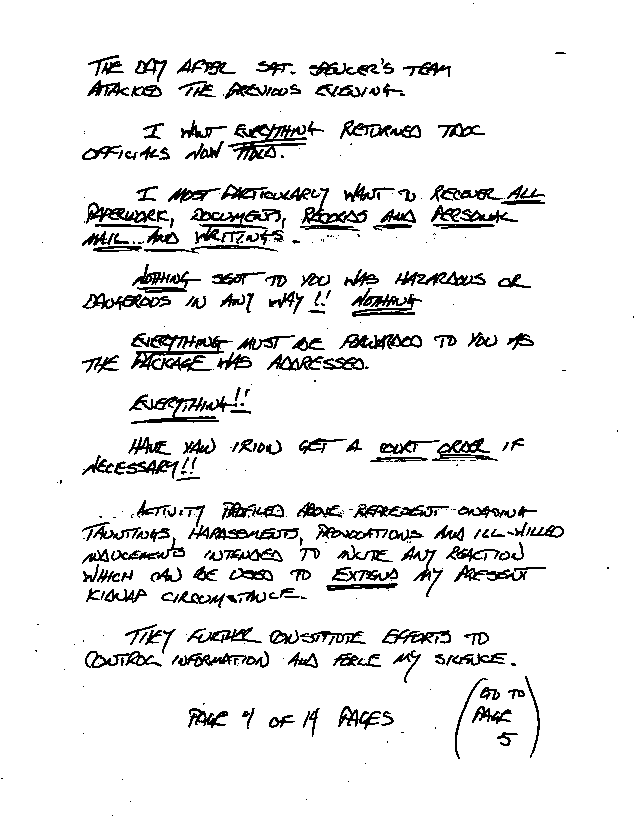 THE DAY AFTER SGT. SPENCER'S TEAM
ATTACKED THE PREVIOUS EVENING.
I WANT EVERYTHING RETURNED TDOC
OFFICIALS NOW HOLD.
I MOST PARTICULARLY WANT TO RECOVER ALL
PAPERWORK, DOCUMENTS, RECORDS AND PERSONAL
MAIL AND WRITINGS.
NOTHING SENT TO YOU WAS HAZARDOUS OR
DANGEROUS IN ANY WAY!! NOTHING
EVERYTHING MUST BE FORWARDED TO YOU AS
THE PACKAGE WAS ADDRESSED.
EVERYTHING!!
HAVE VAN IRION GET A COURT ORDER IF
NECESSARY!!
ACTIVITY PROFILED ABOVE REPRESENT ONGOING
TAUNTINGS, HARASSMENTS, PROVOCATIONS AND ILL-WILLED
INDUCEMENTS INTENDED TO INCITE ANY REACTION
WHICH CAN BE USED TO EXTEND MY PRESENT
KIDNAP CIRCUMSTANCE.
THEY FURTHER CONSTITUTE EFFORTS TO
CONTROL INFORMATION AND FORCE MY SILENCE.
PAGE 4 OF 14 PAGES
(GO TO
PAGE
5)